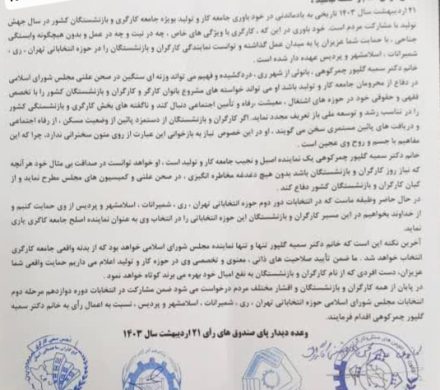 ۲۱ اردیبهشت سال ۱۴۰۳ تاریخی به یادماندنی در خود باوری جامعه کار و تولید بویژه جامعه کارگری و بازنشستگان کشور در سال جهش
تولید با مشارکت مردم است. خود باوری در این که ، کارگری با ویژگی های خاص ، چه در نیت و چه در عمل و بدون هیچگونه وابستگی
جناحی ، با حمایت شما عزیزان پا به میدان عمل گذاشته و توانست نمایندگی کارگران و بازنشستگان را در حوزه انتخاباتی تهران ، ری ،
شمیرانات ، اسلامشهر و پردیس عهده دار شده است .
خانم دکتر سمیه گلپور چمرکوهی ، بانوئی از شهر ری ، دردکشیده و فهیم می تواند وزنه ای سنگین در صحن علنی مجلس شورای اسلامی
در دفاع از محرومان جامعه کار و تولید باشد او می تواند خواسته های مشروع بانوان کارگر و کارگران و بازنشستگان کشور را با تخصص
فقهی و حقوقی خود در حوزه های اشتغال ، معیشت رفاه و تأمین اجتماعی دنبال کند و ناگفته های بخش کارگری و بازنشستگی کشور
را در تناسب رشد و توسعه ملی باز تعریف مجدد نماید. اگر کارگران و بازنشستگان از دستمزد پائین از وضعیت مسکن ، از رفاه اجتماعی
و دریافت های پائین مستمری سخن می گویند ، او در این خصوص نیاز به بازخوانی این عبارت از روی متون سخنرانی ندارد، چرا که این
مفاهیم با جسم و روح وی عجین است .
خانم دکتر سمیه گلپور چمرکوهی یک نماینده اصیل و نجیب جامعه کار و تولید است ، او خواهد توانست در صداقت بی مثال خود هر آنچه
که نیاز روز کارگران و بازنشستگان باشد بدون هیچ دغدغه مخاطره انگیزی ، در صحن علنی و کمیسیون های مجلس مطرح نماید و از
کیان کارگران و بازنشستگان کشور دفاع کند .
در حال حاضر وظیفه ماست که در انتخابات دور دوم حوزه انتخابیه تهران ، ری ، شمیرانات ، اسلامشهر و پردیس از وی حمایت کنیم و
از خداوند بخواهیم در این مسیر کارگران و بازنشستگان این حوزه انتخاباتی را در انتخاب وی به عنوان نماینده اصلح جامعه کارگری یاری
نماید.
آخرین نکته این است که خانم دکتر سمیه گلپور تنها و تنها نماینده مجلس شورای اسلامی خواهد بود که از بدنه واقعی جامعه کارگری
انتخاب خواهد شد . ما ضمن تأیید صلاحیت های ذاتی ، معنوی و تخصصی وی در حوزه کار و تولید اعلام می داریم حمایت واقعی شما
عزیزان، دست افرادی که از نام کارگران و بازنشستگان به نفع امیال خود بهره می برند کوتاه خواهد نمود .
در پایان از همه کارگران و اقشار مختلف مردم درخواست می شود ضمن مشارکت در انتخابات دوره دوازدهم مرحله دوم
انتخابات مجلس شورای اسلامی حوزه انتخاباتی تهران ، ری ، شمیرانات ، اسلامشهر و پردیس، نسبت به اعمال رأی به خانم دکتر سمیه
گلپور چمرکوهی اقدام فرمایند.
وعده دیدار پای صندوق های رأی ۲۱ اردیبهشت سال ۱۴۰۳